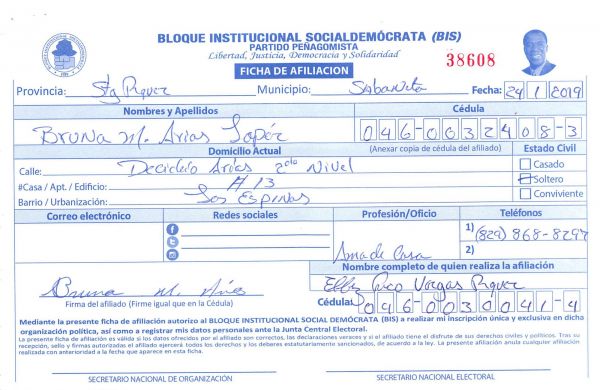 BLOQUE INSTITUCIONAL SOCIALDEMÓCRATA (BIS)
PARTIDO PEÑAGOMISTA
Libertad, Justicia, Democracia y Solidaridad
38608
FICHA DE AFILIACION
Provincia: Municipio: Sabaneta Fecha: 24/1/2019
Nombres y Apellidos Cédula
Bruna M. Arias Lopéz 046-0032408-3
Domicilio Actual (Anexar copia de cédula del afiliado) Estado Civil
Calle: Decideio Arias 2do Nivel Casado
#Casa / Apt. / Edificio: # 13 Soltero
Barrio / Urbanización: Los Espinos Conviviente
Correo electrónico Redes sociales Profesión/Oficio Teléfonos
1) (829) 868-8297
Ama de Casa 2)
Nombre completo de quien realiza la afiliación
Bruna M. Arias Vargas
Firma del afiliado (Firme igual que en la Cédula) Cédula: 046-0030041-4
Mediante la presente ficha de afiliación autorizo al BLOQUE INSTITUCIONAL SOCIAL DEMÓCRATA (BIS) a realizar mi inscripción única y exclusiva en dicha
organización política, así como a registrar mis datos personales ante la Junta Central Electoral.
La presente ficha de afiliación es válida si los datos ofrecidos por el afiliado son correctos, las declaraciones veraces y si el afiliado tiene el disfrute de sus derechos civiles y políticos. Tras su
recepción, sello y firmas autorizadas el afiliado ejercerá todos los derechos y los deberes estatutariamente sancionados, de acuerdo a la ley. La presente afiliación anula cualquier afiliación
realizada con anterioridad a la fecha que aparece en esta ficha.
SECRETARIO NACIONAL DE ORGANIZACIÓN SECRETARIO NACIONAL ELECTORAL